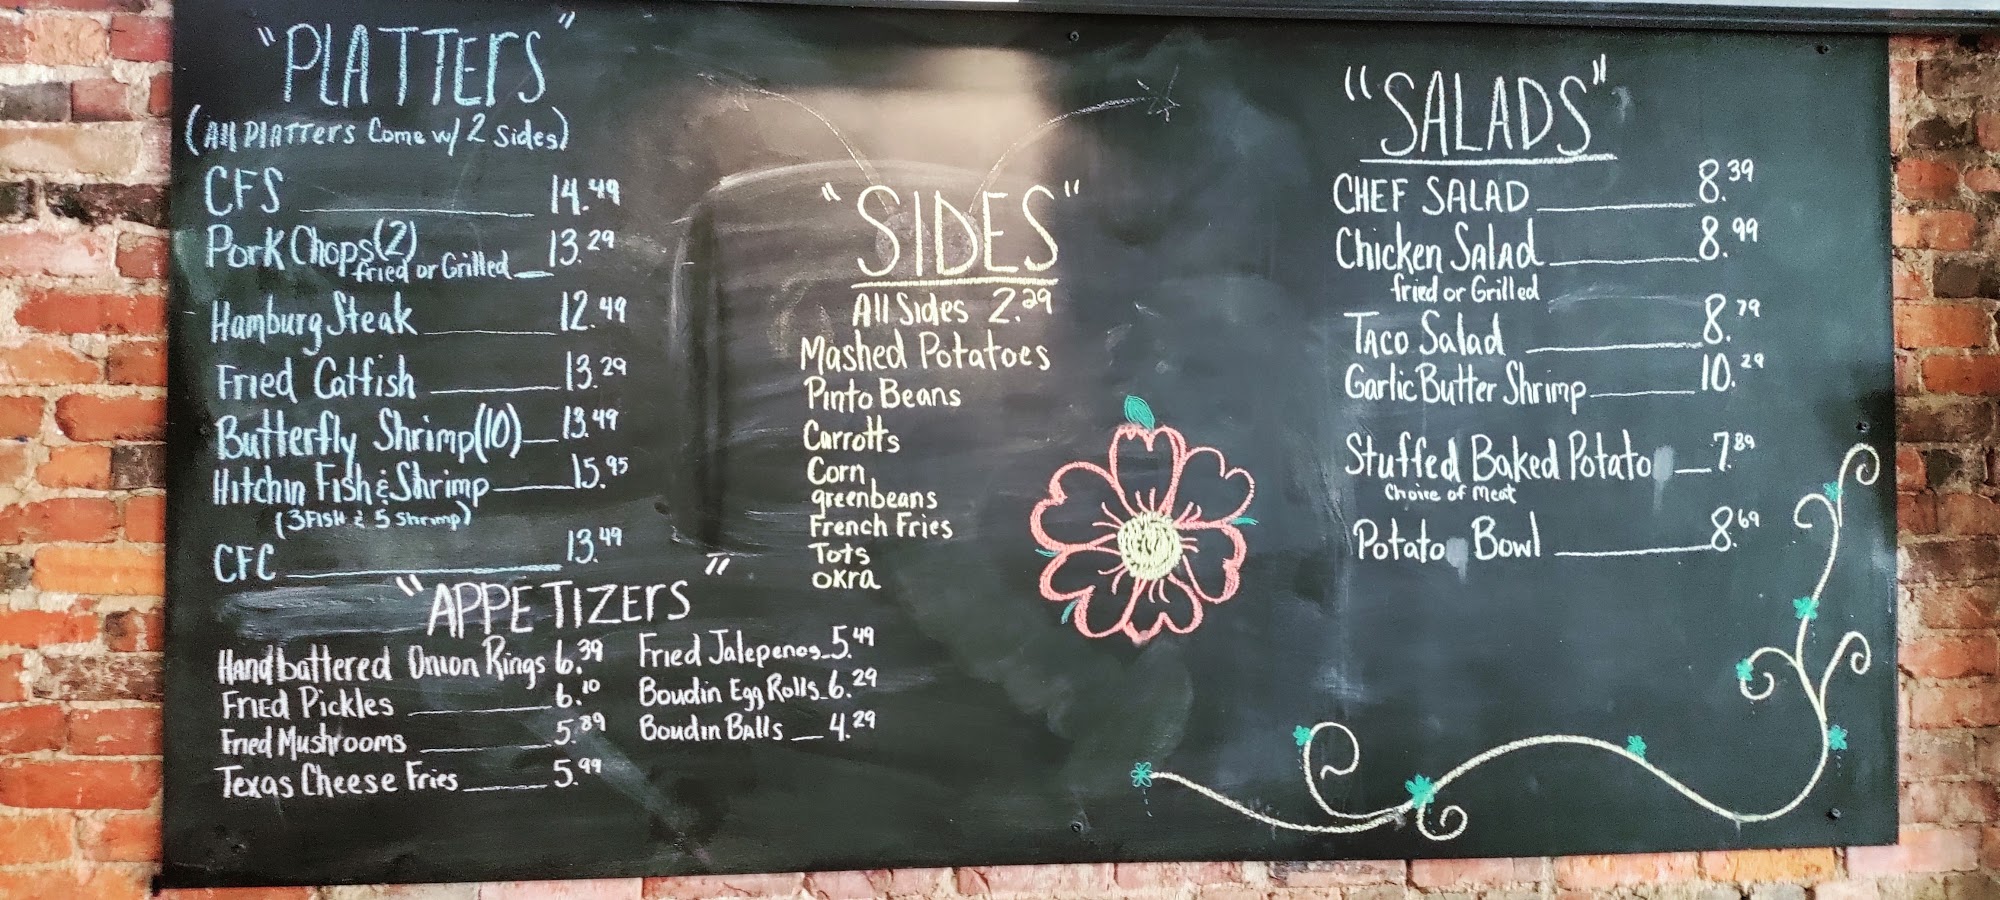 "PLATTErS"
(All PlATTErs Come w/ 2 sides)
CFS 14.49
Pork Chops(2) 13.29
fried or Grilled
Hamburg Steak 12.49
Fried Catfish 13.29
Butterfly Shrimp(10) 13.49
Hitchin Fish & Shrimp 15.95
(3 FISH & 5 Shrimp)
CFC 13.49
"APPETIZErS"
Handbattered Onion Rings 6.39
Fried Pickles 6.10
Fried Mushrooms 5.89
Texas Cheese Fries 5.99
Fried Jalepenos 5.49
Boudin Egg Rolls 6.29
Boudin Balls 4.29
"SIDES"
All Sides 2.29
Mashed Potatoes
Pinto Beans
Carrotts
Corn
greenbeans
French Fries
Tots
okra
"SALADS"
CHEF SALAD 8.39
Chicken Salad 8.99
fried or Grilled
Taco Salad 8.79
Garlic Butter Shrimp 10.29
Stuffed Baked Potato 7.89
Choice of Meat
Potato Bowl 8.69